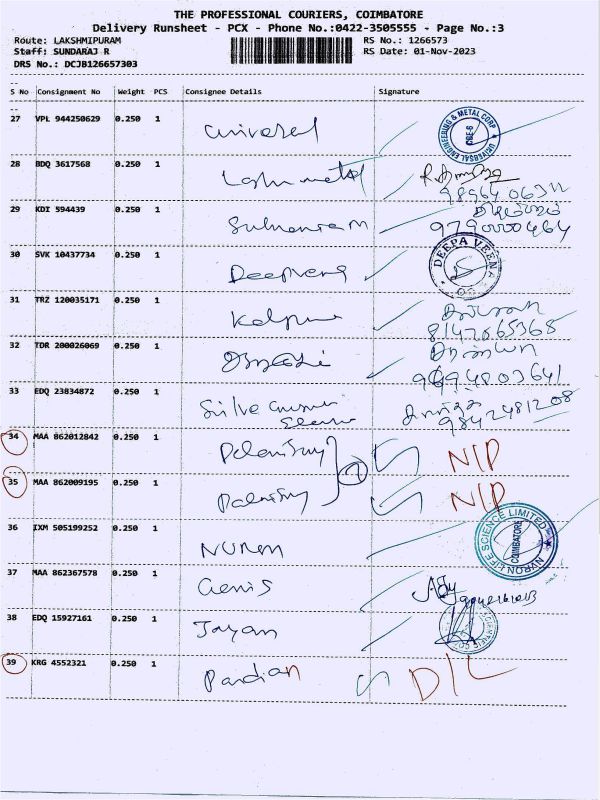 THE PROFESSIONAL COURIERS, COIMBATORE
Delivery Runsheet - PCX - Phone No.:0422-3505555 - Page No.:3
Route: LAKSHMIPURAM RS No.: 1266573
Staff: SUNDARAJ R RS Date: 01-Nov-2023
DRS No.: DCJB126657303
S No Consignment No Weight PCS Consignee Details Signature
27 VPL 944250629 0.250 1 universal UNIVERSAL ENGINEERING & METAL CORP CBE-6
28 BDQ 3617568 0.250 1 metal
29 KDI 594439 0.250 1 9790000464
30 SVK 10437734 0.250 1 Deepveena DEEPA VEENA
31 TRZ 120035171 0.250 1 Kalpana 8147665368
32 TDR 200026069 0.250 1
33 EDQ 23834872 0.250 1 9842481208
34 MAA 862012842 0.250 1 Palanisamy NIP
35 MAA 862009195 0.250 1 Palanisamy NIP
36 IXM 505199252 0.250 1 LIFE SCIENCE LIMITED COIMBATORE
37 MAA 862367578 0.250 1 Genis
38 EDQ 15927161 0.250 1 Jayan
39 KRG 4552321 0.250 1 Pandian D/L